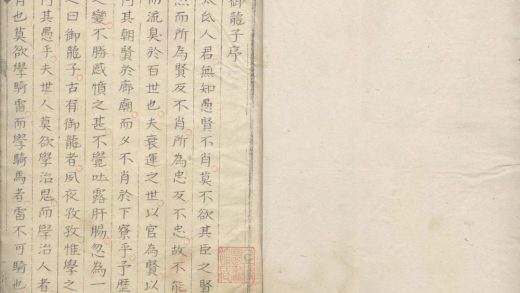 御龍子序
人君無知愚賢不肖莫不欲其臣之賢
然而所為賢反不肖所為忠反不忠故不能
而流臭於百世也夫衰運之世以官為賢以
何其朝賢於廊廟而夕不肖於下寮乎予歷
之變不勝感憤之甚不覺吐露肝膓忽為一
之曰御龍子古有御龍者夙夜孜孜惟學之
何其愚乎夫世人莫欲學治鬼而學治人者
有也莫欲學騎雷而學騎馬者雷不可騎也